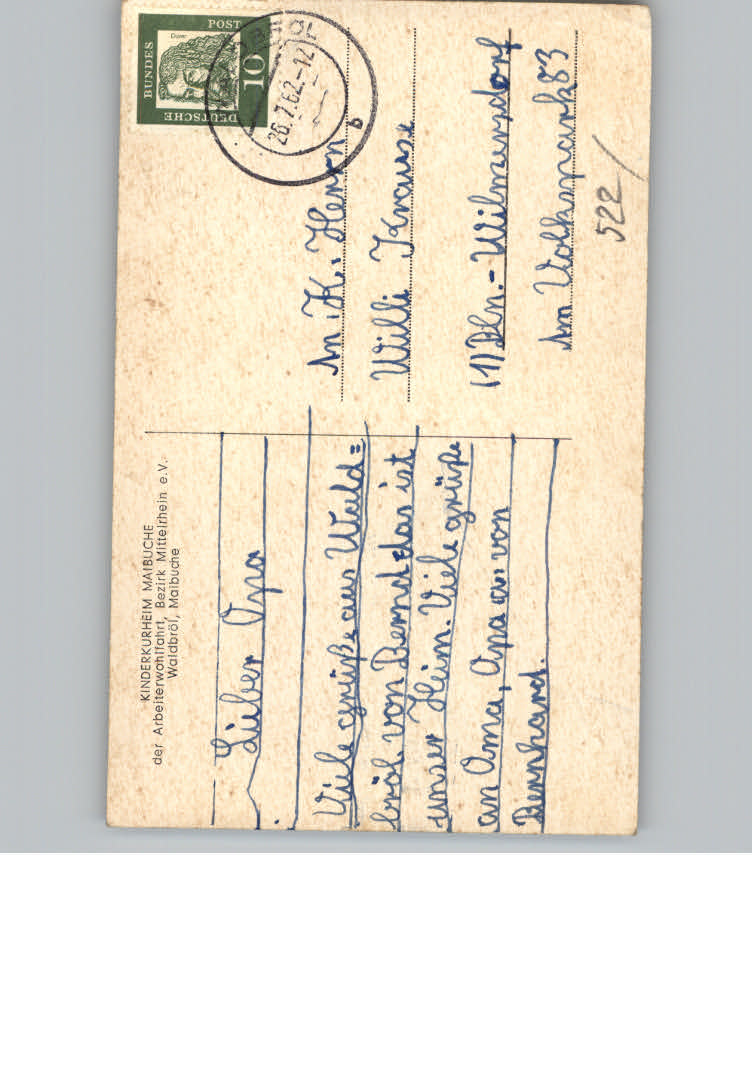 KINDERKURHEIM MAIBUCHE
der Arbeiterwohlfahrt, Bezirk Mittelrhein e.V.
Waldbröl, Maibuche
Lieber Opa
Viele grüße aus Wald=
bröl von Bernd das ist
unser Heim. Viele grüße
an Oma, Opa von
Bernhard.
DEUTSCHE
BUNDES
POST
Dürer
10
26.7.62.-12
b
An H. Herrn
Willi Krause
(1) Bln.-Wilmersdorf
Am Volkspark 83
522/